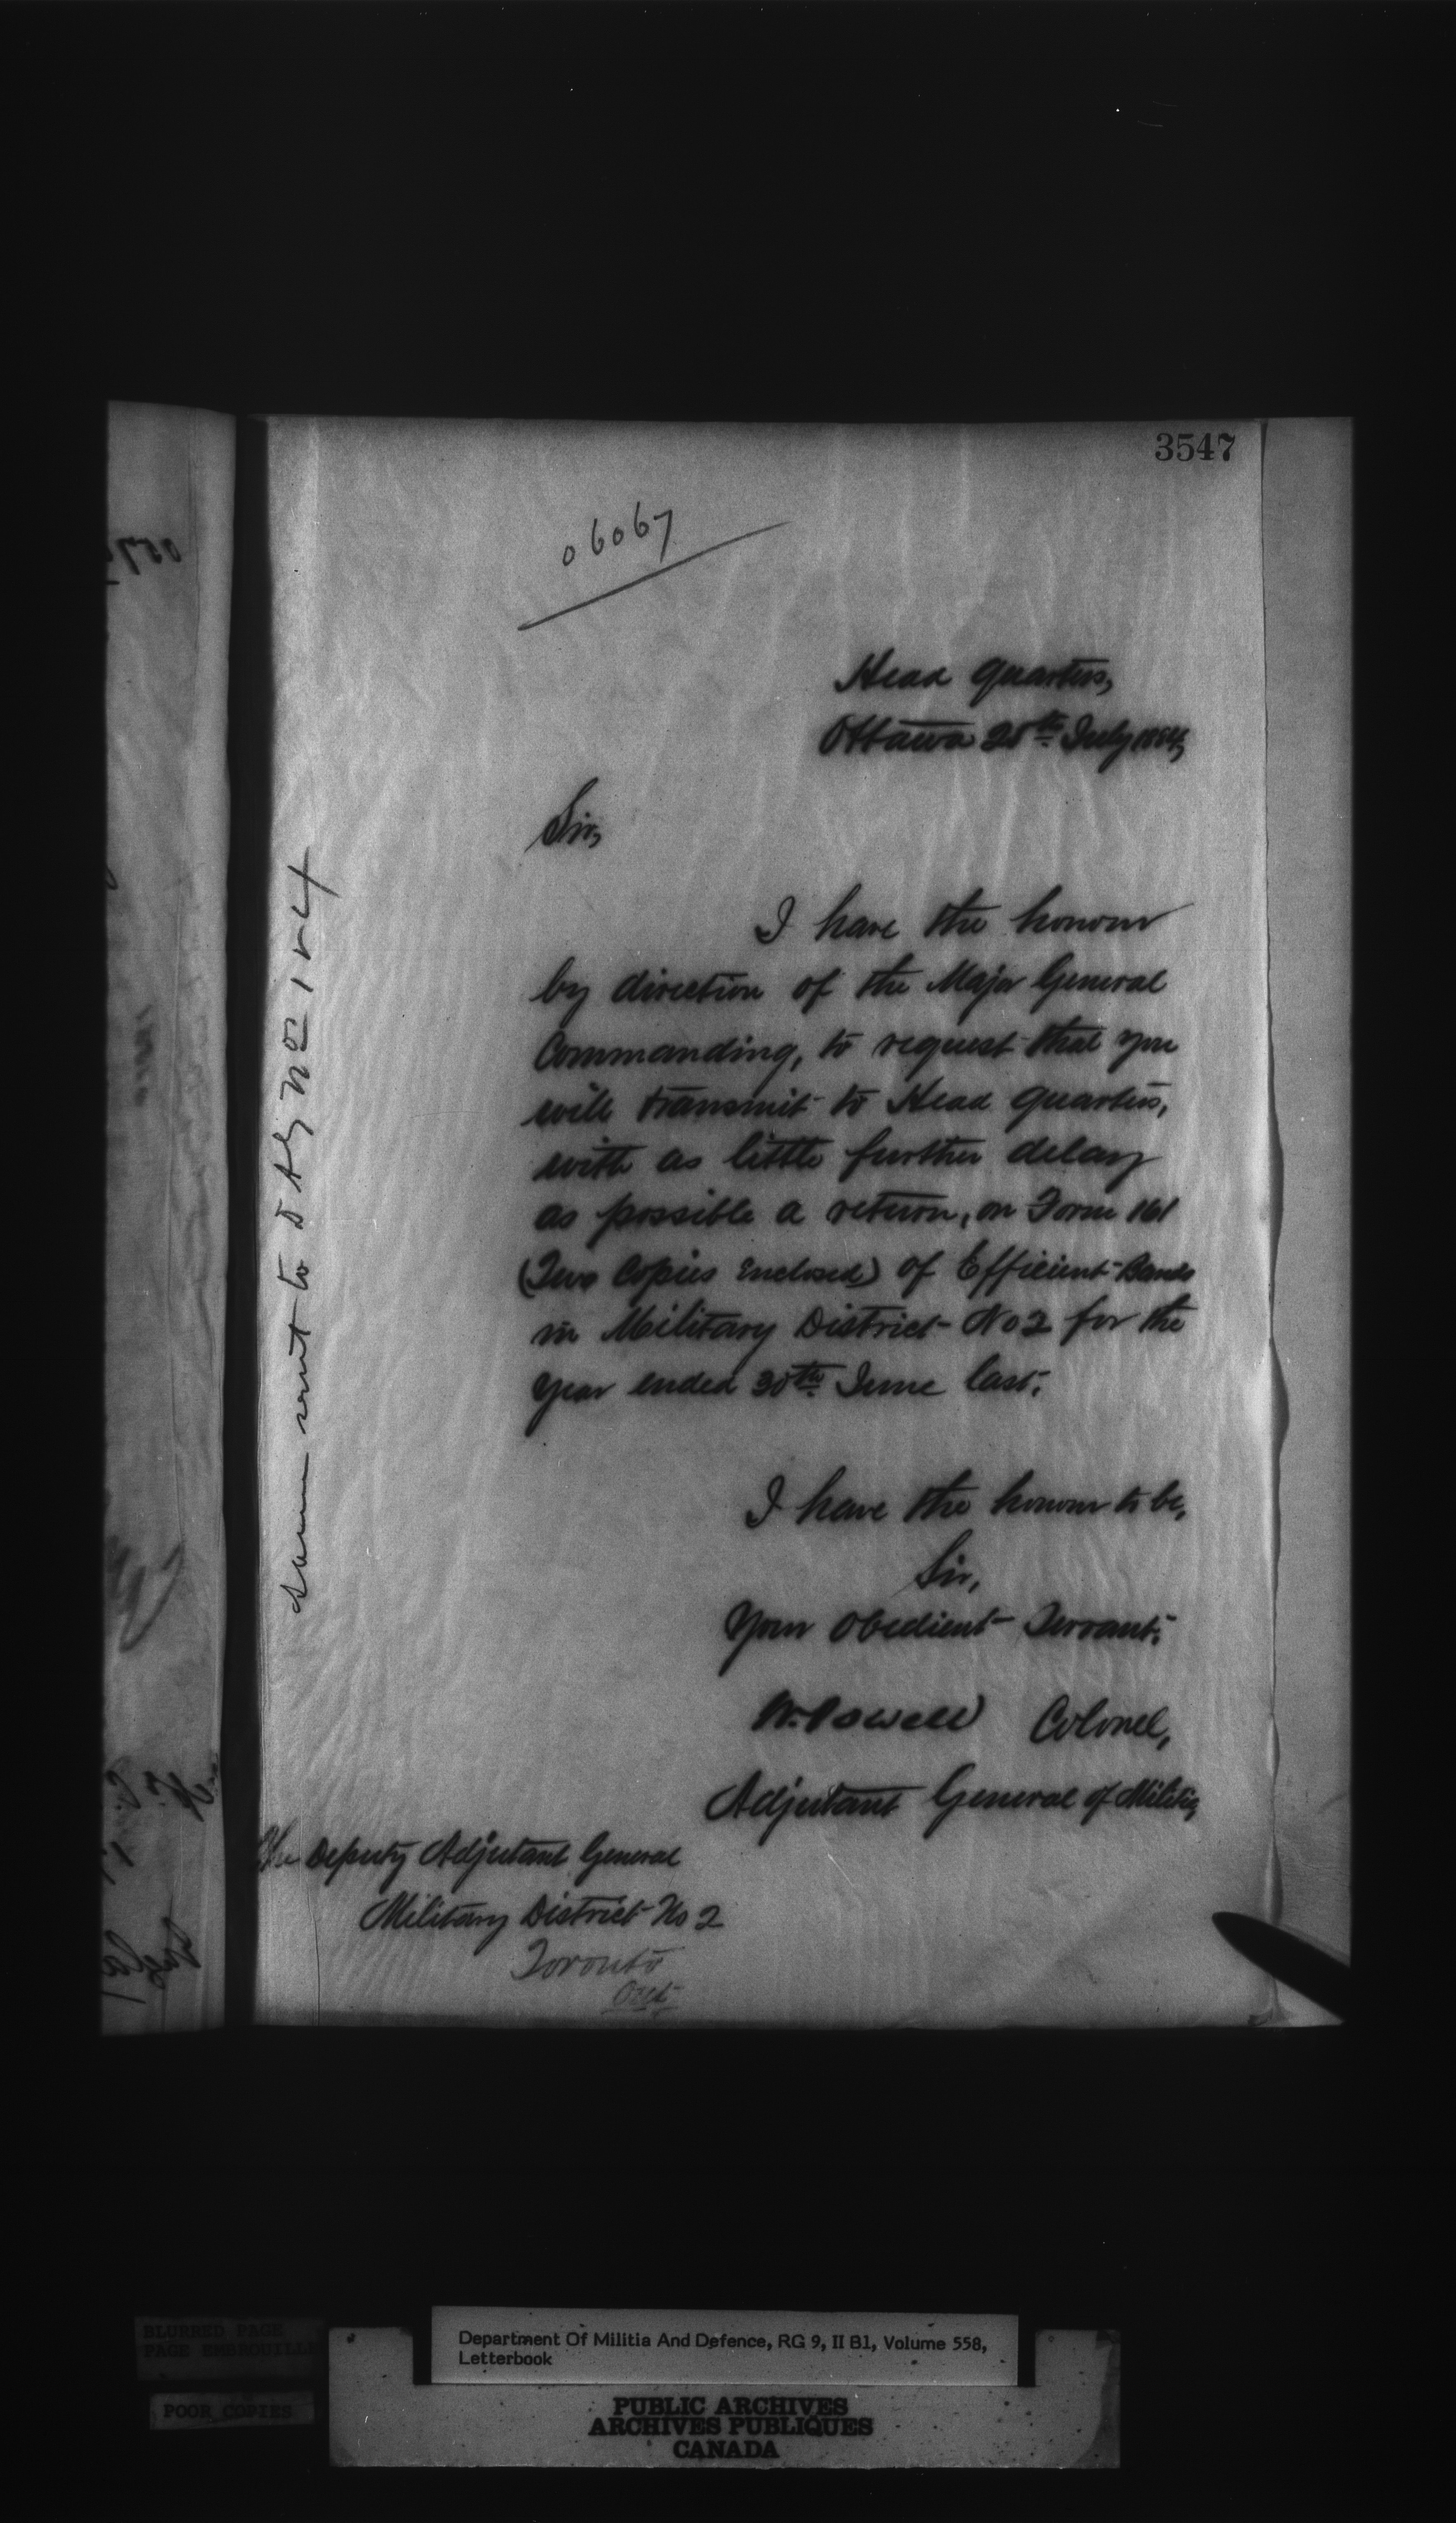 3547
06067
Head Quarters,
Ottawa 28th July 1884,
Sir,
I have the honour
by direction of the Major General
Commanding, to request that you
will transmit to Head Quarters,
with as little further delay
as possible a return, on Form 161
(Two Copies Enclosed) of Efficient Bands
in Military District No 2 for the
year ended 30th June last.
I have the honour to be,
Sir,
Your Obedient Servant.
W. Powell Colonel,
Adjutant General of Militia
The Deputy Adjutant General
Military District No 2
Toronto
Ont
Same sent to D A G No 1 & 4
BLURRED PAGE
PAGE EMBROUILLE
POOR COPIES
Department Of Militia And Defence, RG 9, II B1, Volume 558,
Letterbook
PUBLIC ARCHIVES
ARCHIVES PUBLIQUES
CANADA